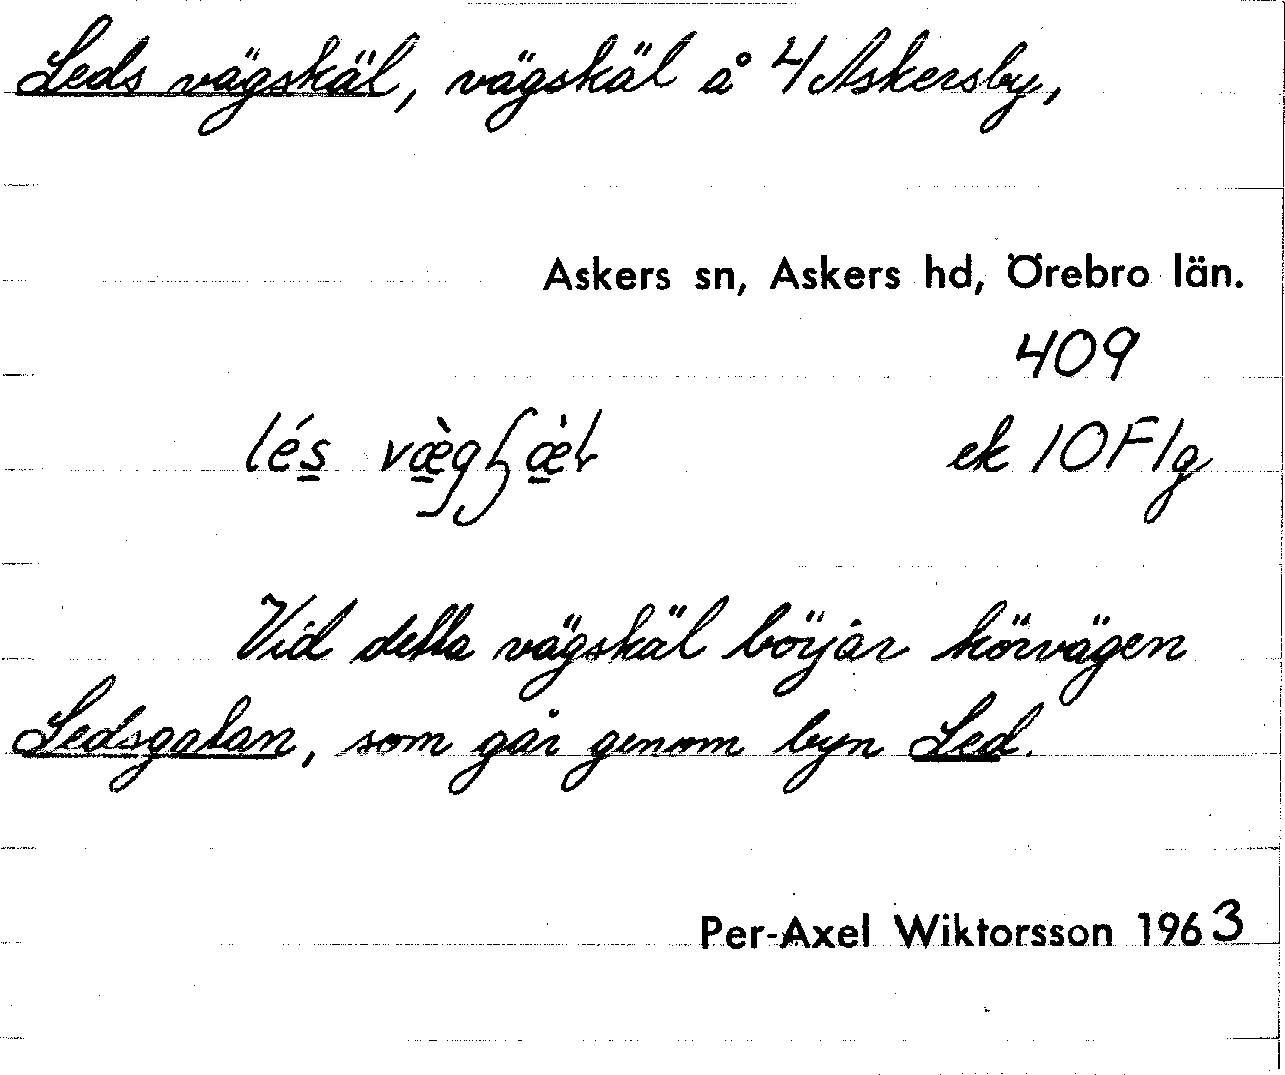 Leds vägskäl, vägskäl å 4 Askersby,
Askers sn, Askers hd, Örebro län.
409
lés
ek 10F1g
Vid detta vägskäl börjar körvägen
Ledsgatan, som går genom byn Led.
Per-Axel Wiktorsson 1963